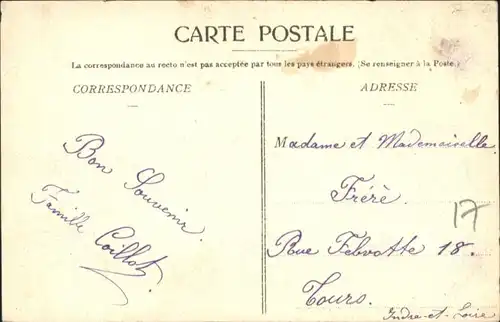 CARTE POSTALE
La correspondance au recto n'est pas acceptée par tous les pays étrangers. (Se renseigner à la Poste.)
CORRESPONDANCE
ADRESSE
Bon Souvenir.
Famille Coillot
Madame et Mademoiselle.
Fréré.
Rue Febvotte 18.
Tours.
Indre-et-Loire
17